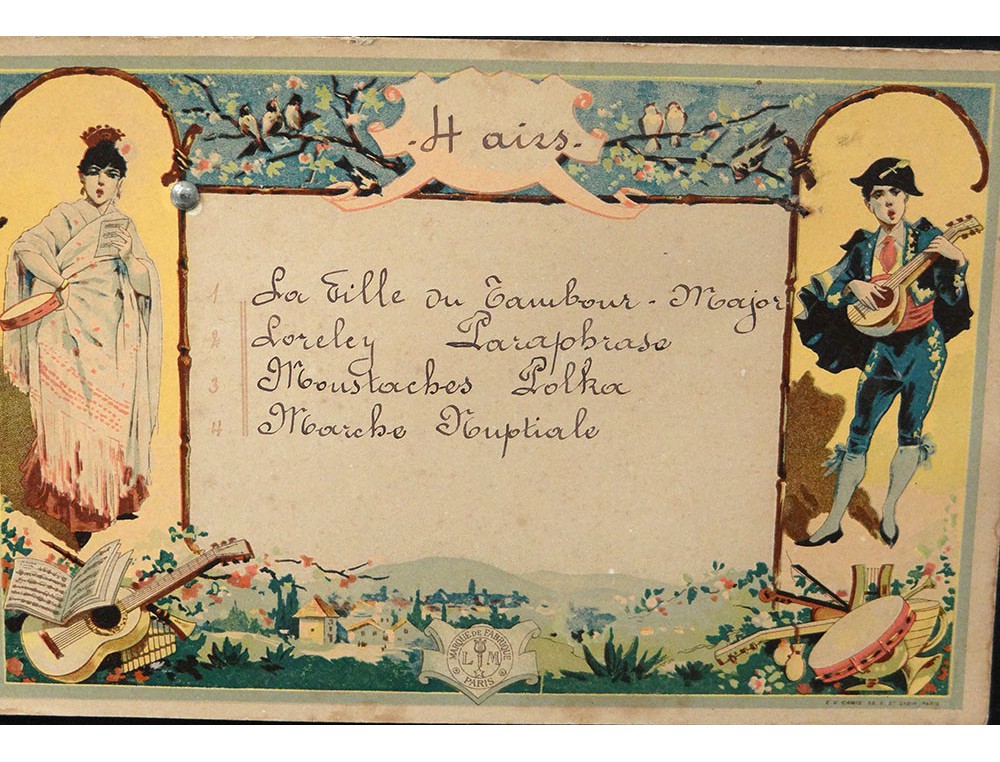 - 4 airs -
1 La Fille du Tambour-Major
2 Loreley Paraphrase
3 Moustaches Polka
4 Marche Nuptiale
MARQUE DE FABRIQUE
L M
PARIS
PARIS